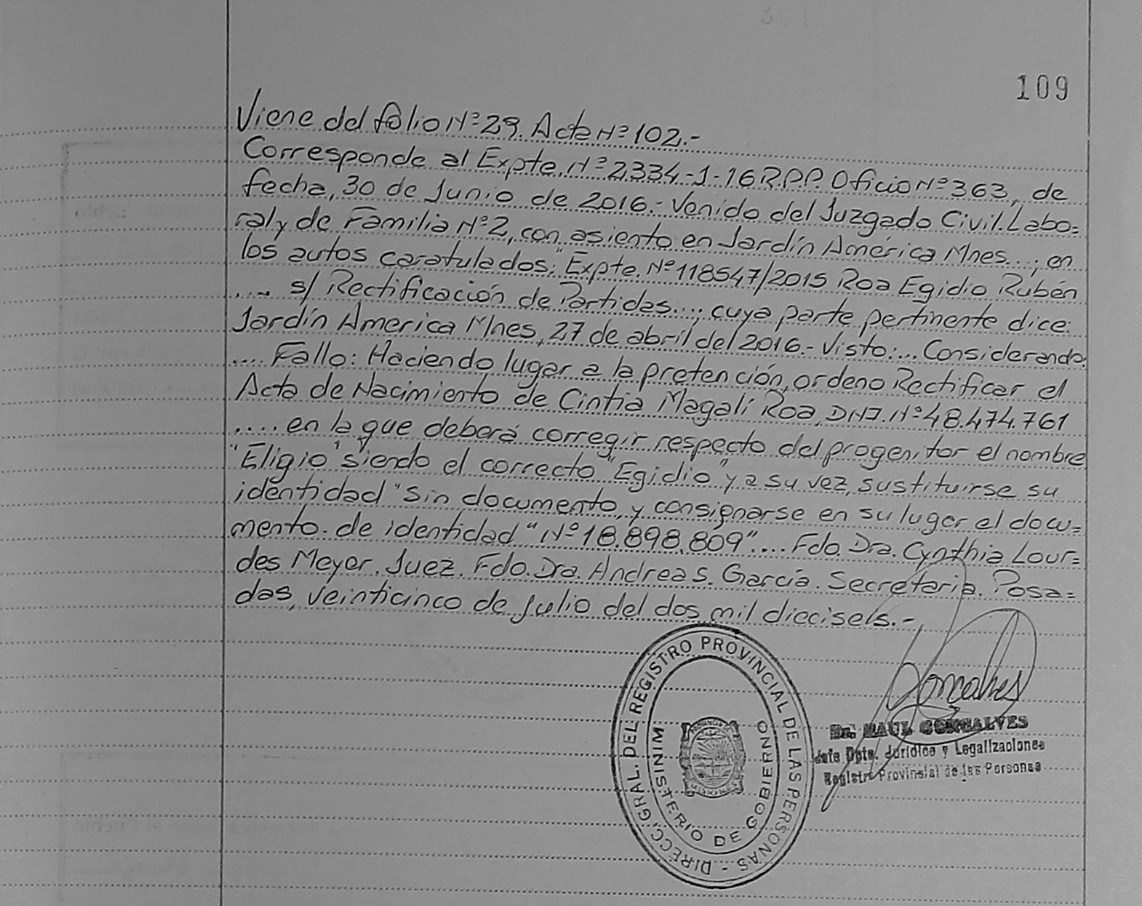 109
Viene del folio Nº 29. Acta Nº 102.-
Corresponde al Expte. Nº 2334-J-16 R.P.P. Oficio Nº 363, de
fecha, 30 de Junio de 2016.- Venido del Juzgado Civil. Labo=
ral y de Familia Nº 2, con asiento en Jardín América Mnes..., en
los autos caratulados: "Expte. Nº 118547/2015 Roa Egidio Rubén
.... s/ Rectificación de Partidas...", cuya parte pertinente dice:
Jardín America Mnes, 27 de abril del 2016.- Visto:... Considerando:
.... Fallo: Haciendo lugar a la pretención, ordeno Rectificar el
Acta de Nacimiento de Cintia Magalí Roa, DNI. Nº 48.474.761
.... en la que deberá corregir respecto del progenitor el nombre
"Eligio" siendo el correcto "Egidio" y a su vez, sustituirse su
identidad "sin documento, y consignarse en su lugar el docu=
mento de identidad "Nº 18.898.809".... Fdo. Dra. Cynthia Lour=
des Meyer. Juez. Fdo. Dra. Andrea S. García. Secretaria. Posa=
das, veinticinco de julio del dos mil dieciseis.-
DIRECC. GRAL. DEL REGISTRO PROVINCIAL DE LAS PERSONAS -
MINISTERIO DE GOBIERNO
MISIONES
Goncalves
Dr. RAUL GONCALVES
Jefe Dpto. Jurídico y Legalizaciones
Registro Provincial de las Personas